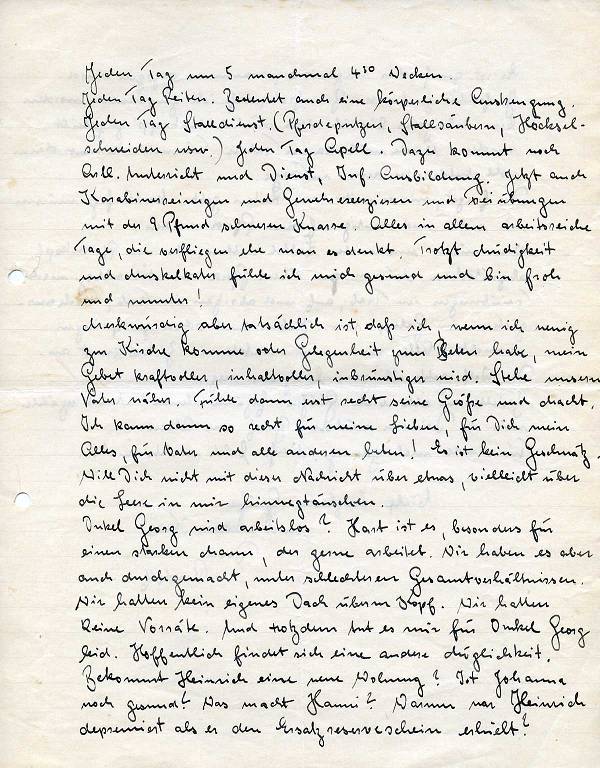 Jeden Tag um 5 manchmal 4³⁰ Wecken.
Jeden Tag Reiten. Bedeutet auch eine körperliche Anstrengung.
Jeden Tag Stalldienst. (Pferdeputzen, Stallsäubern, Häcksel-
schneiden usw.) Jeden Tag Apell. Dazu kommt noch
Artl. Unterricht und Dienst, Inf. Ausbildung. Jetzt auch
Karabinerreinigen und Gewehrexerzieren und
mit der 9 Pfund schweren Knarre. Alles in allem arbeitsreiche
Tage, die verfliegen ehe man es denkt. Trotzt Müdigkeit
und Muskelkater fühle ich mich gesund und bin froh
und munter!
Merkwürdig aber tatsächlich ist, daß ich, wenn ich wenig
zur Kirche komme oder Gelegenheit zum Beten habe, mein
Gebet kraftvoller, inhaltvoller, inbrünstiger wird. Stehe unserm
Vater näher. Fühle dann erst recht seine Größe und Macht.
Ich kann dann so recht für meine Lieben, für Dich mein
Alles, für Vater und alle anderen beten! Es ist kein Geschwätz.
Will Dich nicht mit dieser Nachricht über etwas, vielleicht über
die Leere in mir hinwegtäuschen.
Onkel Georg wird arbeitslos? Hart ist es, besonders für
einen starken Mann, der gerne arbeitet. Wir haben es aber
auch durchgemacht, unter schlechteren Gesamtverhältnissen.
Wir hatten kein eigenes Dach überm Kopf. Wir hatten
keine Vorräte. Und trotzdem tut es mir für Onkel Georg
leid. Hoffentlich findet sich eine andere Möglichkeit.
Bekommt Heinrich eine neue Wohnung? Ist Johanna
noch gesund? Was macht Hanni? Warum war Heinrich
depremiert als er den Ersatzreserveschein erhielt?